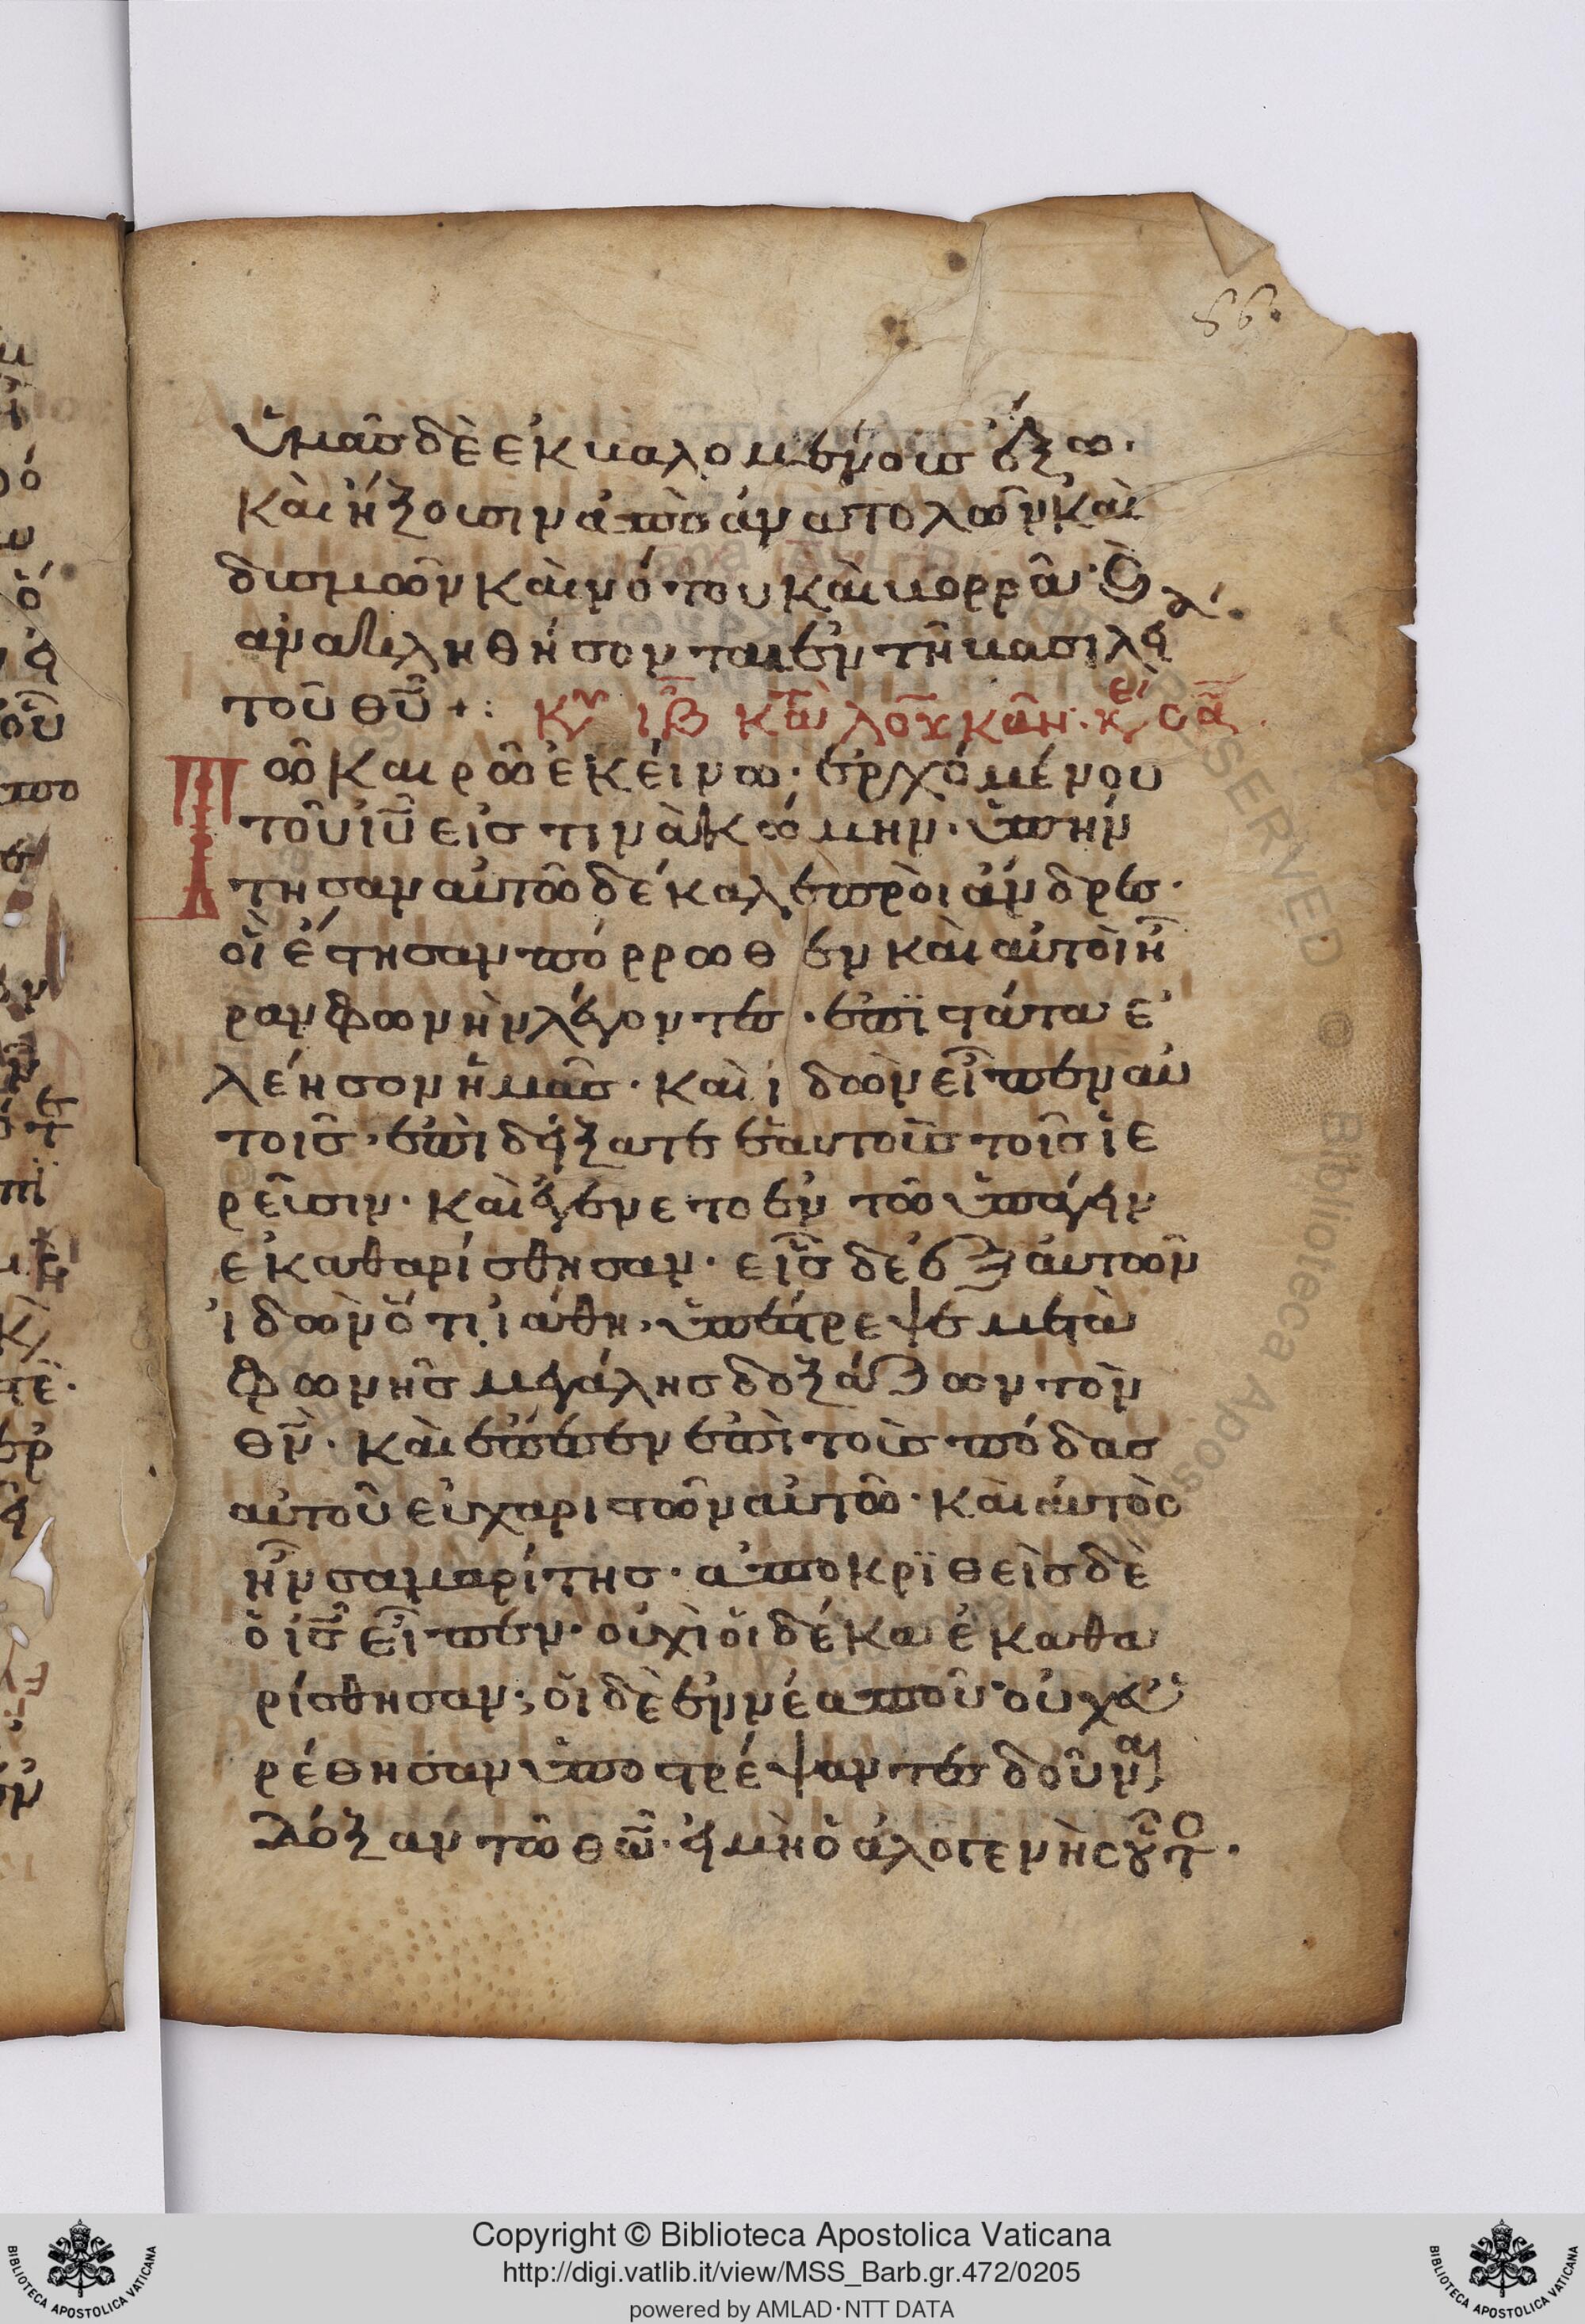 86.
ὑμᾶσ δὲ ἐκβαλομένουσ ἔξω·
καὶ ἥξουσιν ἀπὸ ἀνατολῶν καὶ
δυσμῶν καὶ νότου καὶ βορρᾶ· καὶ
ἀνακλιθήσονται ἐν τῆ βασιλεί
τοῦ θῦ +: Κυ ιβ κατὰ λουκᾶν. κε οα.
Τῶ καιρῶ ἐκείνω· ἐρχομένου
τοῦ ιῦ εἰσ τινὰ κώμην· ὑπήν
τησαν αὐτῶ δέκα λεπροὶ ἄνδρεσ·
οἳ ἔστησαν πόρρωθεν καὶ αὐτοὶ ἦ
ραν φωνὴν λέγοντεσ· ἐπιστάτα ἐ
λέησον ἡμᾶσ· καὶ ἰδὼν εἶπεν αὐ
τοῖσ· ἐπιδείξατε ἑαυτοὺσ τοῖσ ἱε
ρεῦσιν· καὶ ἐγένετο ἐν τῶ ὑπάγειν
ἐκαθαρίσθησαν· εἷσ δὲ ἐξ αὐτῶν
ἰδὼν ὅτι ἰάθη· ὑπέστρεψε μετὰ
φωνῆσ μεγάλησ δοξάζων τὸν
θν· καὶ ἔπεσεν ἐπὶ τοὺσ πόδασ
αὐτοῦ εὐχαριστῶν αὐτῶ· καὶ αὐτὸσ
ἦν σαμαρίτησ· ἀποκριθεὶσ δὲ
ὁ ισ εἶπεν· οὐχὶ οἱ δέκα ἐκαθα
ρίσθησαν; οἱ δὲ ἐννέα ποῦ· οὐχ εὑ
ρέθησαν ὑποστρέψαντεσ δοῦναι
δόξαν τῶ θῶ· εἰ μὴ ὁ ἀλογενὴσ οὗτο·
Copyright © Biblioteca Apostolica Vaticana
http://digi.vatlib.it/view/MSS_Barb.gr.472/0205
powered by AMLAD·NTT DATA
BIBLIOTECA APOSTOLICA VATICANA
BIBLIOTECA APOSTOLICA VATICANA